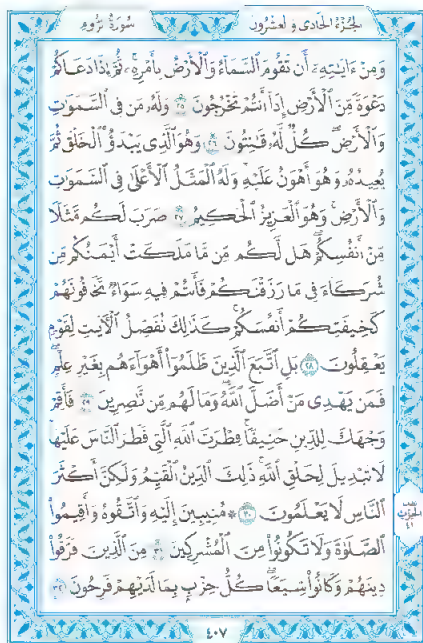 الجُزْءُ الحَادِى وَالعِشْرُونَ سُورَةُ الرُّومِ
وَمِنْ ءَايَٰتِهِۦٓ أَن تَقُومَ ٱلسَّمَآءُ وَٱلْأَرْضُ بِأَمْرِهِۦ ثُمَّ إِذَا دَعَاكُمْ
دَعْوَةً مِّنَ ٱلْأَرْضِ إِذَآ أَنتُمْ تَخْرُجُونَ ٢٥ وَلَهُۥ مَن فِى ٱلسَّمَٰوَٰتِ
وَٱلْأَرْضِ كُلٌّ لَّهُۥ قَٰنِتُونَ ٢٦ وَهُوَ ٱلَّذِى يَبْدَؤُا۟ ٱلْخَلْقَ ثُمَّ
يُعِيدُهُۥ وَهُوَ أَهْوَنُ عَلَيْهِ وَلَهُ ٱلْمَثَلُ ٱلْأَعْلَىٰ فِى ٱلسَّمَٰوَٰتِ
وَٱلْأَرْضِ وَهُوَ ٱلْعَزِيزُ ٱلْحَكِيمُ ٢٧ ضَرَبَ لَكُم مَّثَلًا
مِّنْ أَنفُسِكُمْ هَل لَّكُم مِّن مَّا مَلَكَتْ أَيْمَٰنُكُم مِّن
شُرَكَآءَ فِى مَا رَزَقْنَٰكُمْ فَأَنتُمْ فِيهِ سَوَآءٌ تَخَافُونَهُمْ
كَخِيفَتِكُمْ أَنفُسَكُمْ كَذَٰلِكَ نُفَصِّلُ ٱلْءَايَٰتِ لِقَوْمٍ
يَعْقِلُونَ ٢٨ بَلِ ٱتَّبَعَ ٱلَّذِينَ ظَلَمُوٓا۟ أَهْوَآءَهُم بِغَيْرِ عِلْمٍ
فَمَن يَهْدِى مَنْ أَضَلَّ ٱللَّهُ وَمَا لَهُم مِّن نَّٰصِرِينَ ٢٩ فَأَقِمْ
وَجْهَكَ لِلدِّينِ حَنِيفًا فِطْرَتَ ٱللَّهِ ٱلَّتِى فَطَرَ ٱلنَّاسَ عَلَيْهَا
لَا تَبْدِيلَ لِخَلْقِ ٱللَّهِ ذَٰلِكَ ٱلدِّينُ ٱلْقَيِّمُ وَلَٰكِنَّ أَكْثَرَ
ٱلنَّاسِ لَا يَعْلَمُونَ ٣٠ ۞ مُنِيبِينَ إِلَيْهِ وَٱتَّقُوهُ وَأَقِيمُوا۟
نصف الحزب ٤١
ٱلصَّلَوٰةَ وَلَا تَكُونُوا۟ مِنَ ٱلْمُشْرِكِينَ ٣١ مِنَ ٱلَّذِينَ فَرَّقُوا۟
دِينَهُمْ وَكَانُوا۟ شِيَعًا كُلُّ حِزْبٍۭ بِمَا لَدَيْهِمْ فَرِحُونَ ٣٢
٤٠٧